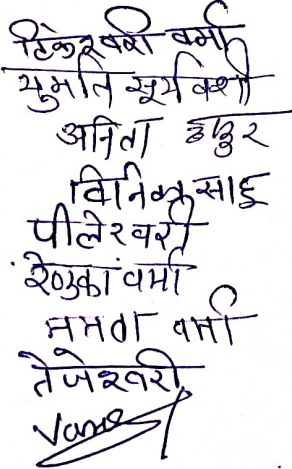 टिकेश्वरी वर्मा
सुमति सूर्यवंशी
अनिता ठाकुर
विनिता साहू
पीलेश्वरी
रेणुका वर्मा
ममता वर्मा
तेजेश्वरी